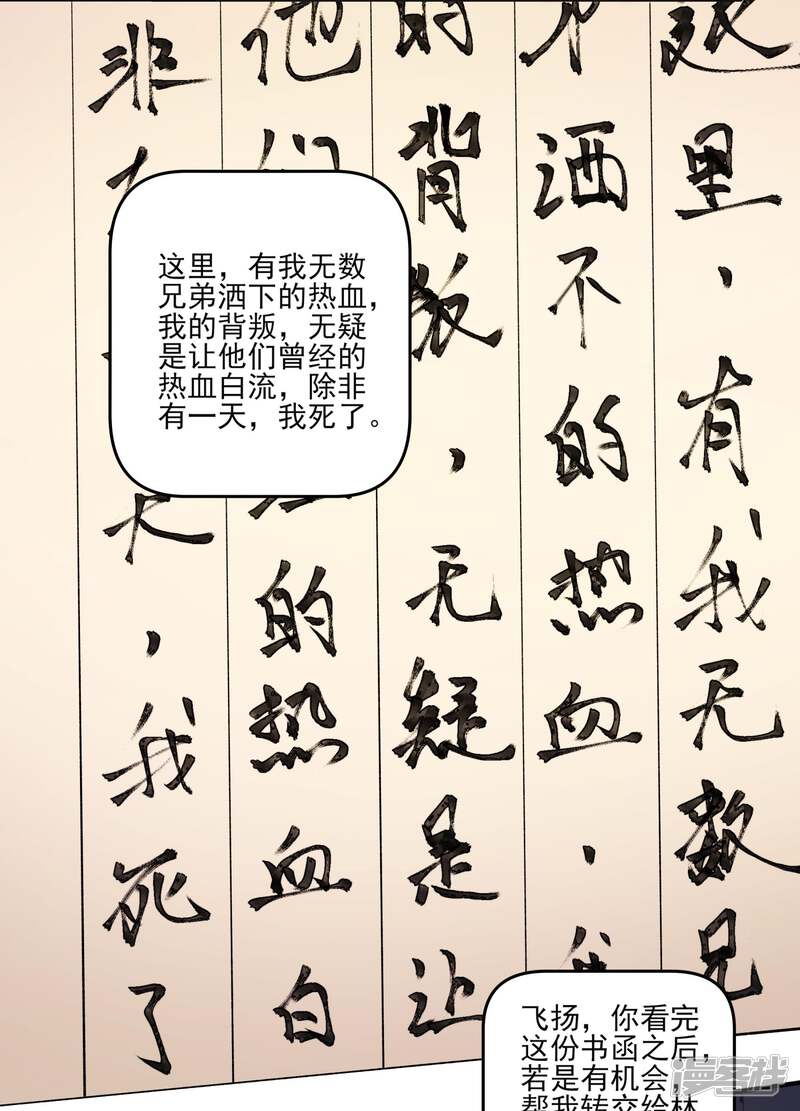 这里，有我无数兄
弟洒不的热血，我
的背叛，无疑是让
他们
的热血白
非有
天，我死了
这里，有我无数
兄弟洒下的热血，
我的背叛，无疑
是让他们曾经的
热血白流，除非
有一天，我死了。
飞扬，你看完
这份书函之后，
若是有机会，
帮我转交给林
漫客栈